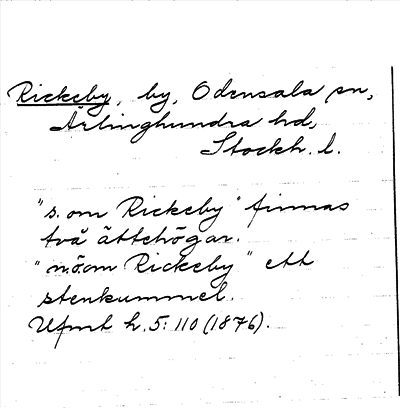 Rickeby, by, Odensala sn,
Ärlinghundra hd,
Stockh. l.
"s. om Rickeby" finnas
två ättehögar.
"n.ö.om Rickeby" ett
stenkummel.
Ufmt h. 5: 110 (1876).